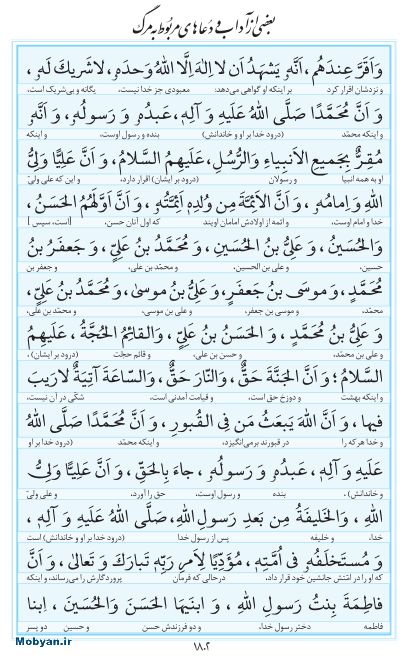 بعضی از آداب و دعاهای مربوط به مرگ
وَ اَقَرَّ عِندَهُم، اَنَّهُ و يَشهَدُ اَن لا اِلٰهَ اِلَّا اللهُ وَحدَهُ و، لا شَريكَ لَهُ و،
و نزدشان اقرار کرد بر اینکه او گواهی می‌دهد: معبودی جز خدا نیست، یگانه و بی‌شریک است،
وَ اَنَّ مُحَمَّدًا صَلَّی اللهُ عَلَيهِ وَ آلِهِ، عَبدُهُ و وَ رَسولُهُ و، وَ اَنَّهُ و
و اینکه محمّد (درود خدا بر او و خاندانش) بنده و رسول اوست، و اینکه
مُقِرٌّ بِجَميعِ الاَنبِياءِ وَالرُّسُلِ، عَلَيهِمُ السَّلامُ، وَ اَنَّ عَلِيًّا وَلِیُّ
او به همه انبیا و رسولان (درود بر ایشان) اقرار دارد، و این که علی ولیّ
اللهِ وَ اِمامُهُ و، وَ اَنَّ الاَئِمَّةَ مِن وُلدِهِ اَئِمَّتُهُ و، وَ اَنَّ اَوَّلَهُمُ الحَسَنُ،
خدا و امام اوست، و ائمه از اولادش امامان اویند که اول آنان حسن، [است، سپس]
وَالحُسَينُ، وَ عَلِیُّ بنُ الحُسَينِ، وَ مُحَمَّدُ بنُ عَلِیٍّ، وَ جَعفَرُ بنُ
حسین، و علی بن الحسین، و محمّد بن علی، و جعفر بن
مُحَمَّدٍ، وَ موسَی بنُ جَعفَرٍ، وَ عَلِیُّ بنُ موسیٰ، وَ مُحَمَّدُ بنُ عَلِیٍّ،
محمّد، و موسی بن جعفر، و علی بن موسی، و محمّد بن علی،
وَ عَلِیُّ بنُ مُحَمَّدٍ، وَ الحَسَنُ بنُ عَلِیٍّ، وَالقائِمُ الحُجَّةُ، عَلَيهِمُ
و علی بن محمّد، و حسن بن علی، و قائم حجّت (درود بر ایشان)،
السَّلامُ؛ وَ اَنَّ الجَنَّةَ حَقٌّ، وَالنّارَ حَقٌّ، وَالسّاعَةَ آتِيَةٌ لا رَيبَ
و اینکه بهشت و دوزخ حق است، و قیامت آمدنی است، شکی در آن نیست،
فيها، وَ اَنَّ اللهَ يَبعَثُ مَن فِی القُبورِ، وَ اَنَّ مُحَمَّدًا صَلَّی اللهُ
و خدا هر که را در قبورند برمی‌انگیزد، و اینکه محمّد (درود خدا بر او
عَلَيهِ وَ آلِهِ، عَبدُهُ و وَ رَسولُهُ و، جاءَ بِالحَقِّ، وَ اَنَّ عَلِيًّا وَلِیُّ
و خاندانش)، بنده و رسول اوست، حق را آورد، و علی ولیّ
اللهِ، وَالخَليفَةُ مِن بَعدِ رَسولِ اللهِ، صَلَّی اللهُ عَلَيهِ وَ آلِهِ،
خدا، و خلیفه پس از رسول خدا (درود خدا بر او و خاندانش) است
وَ مُستَخلَفُهُ و فی اُمَّتِهِ، مُؤَدِّيًا لِاَمرِ رَبِّهِ تَبارَكَ وَ تَعالیٰ، وَ اَنَّ
که او را در امّتش جانشین خود قرار داد، در حالی که فرمان پروردگارش را می‌رساند، و اینکه
فاطِمَةَ بِنتُ رَسولِ اللهِ، وَ ابنَيهَا الحَسَنَ وَ الحُسَينَ، اِبنا
فاطمه دختر رسول خدا، و دو فرزندش حسن و حسین دو پسر
Mobyan.ir
۱۸۰۲